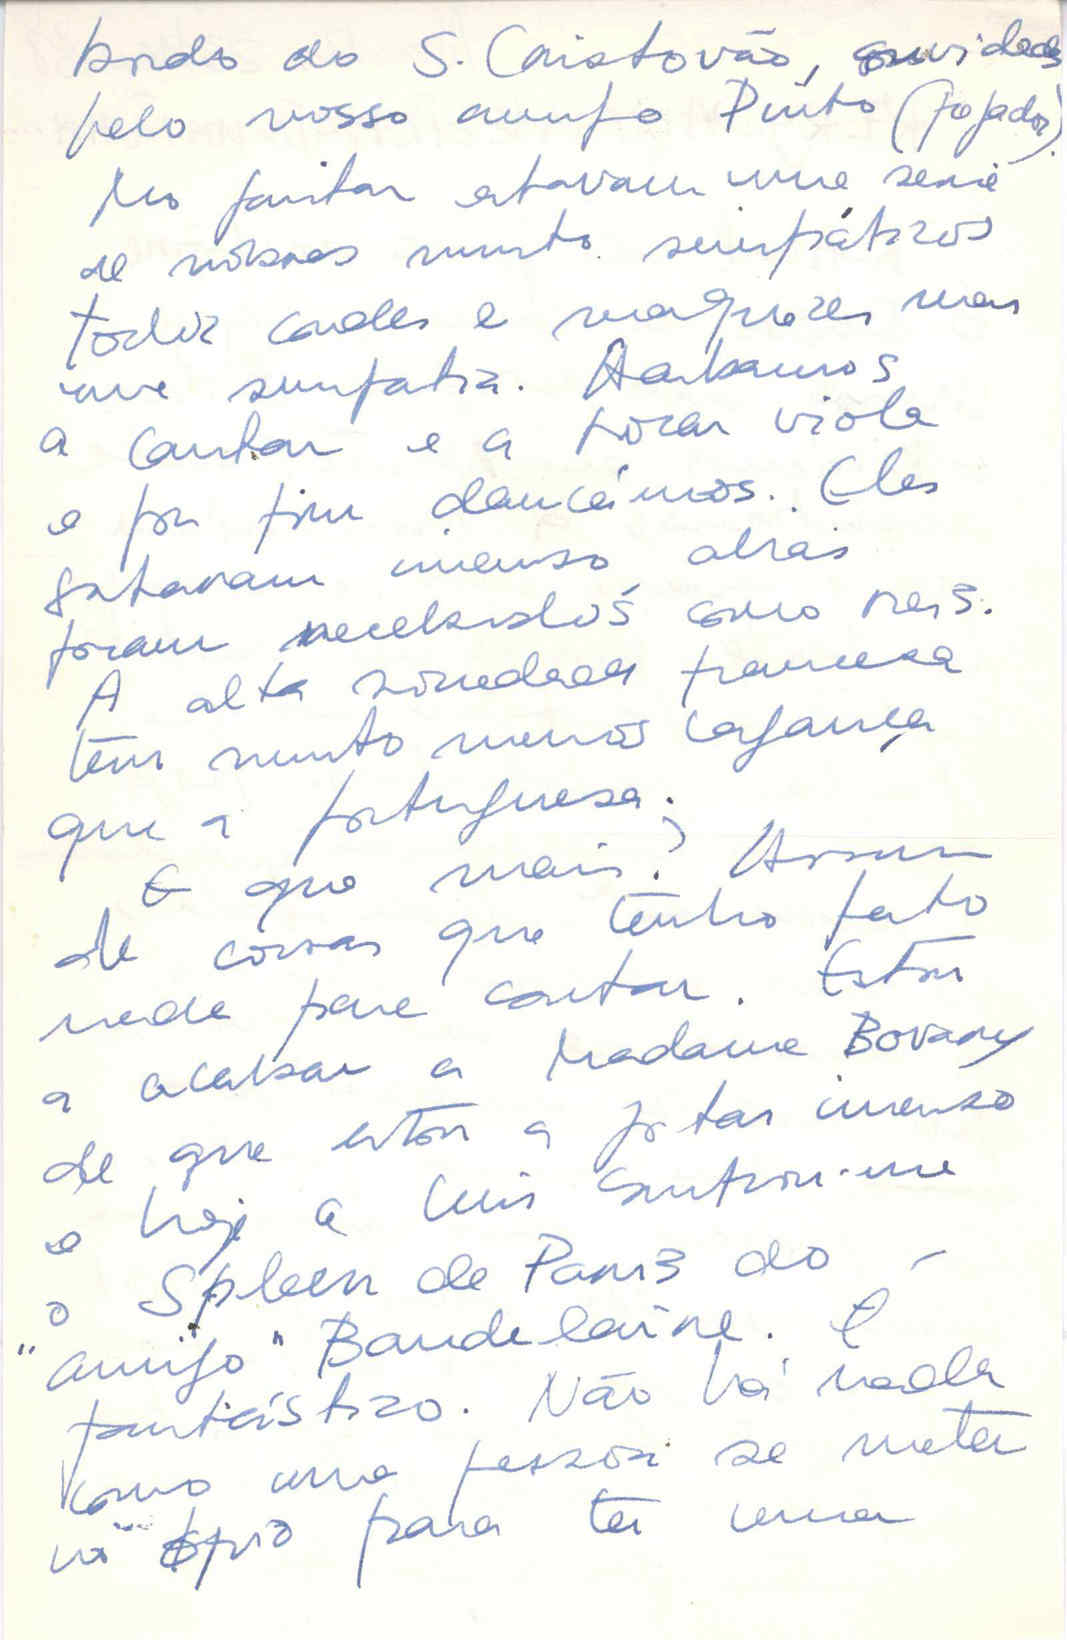 bordo do S. Cristovão, ouvidas
pelo nosso amigo Pinto (fogador).
No jantar estavam uma serie
de nobres muito simpáticos
todos condes e marquezes mas
uma simpatia. Acabamos
a cantar e a tocar viola
e por fim dançámos. Eles
gostaram imenso aliás
foram recebidos como reis.
A alta sociedade francesa
tem muito menos cagança
que a portuguesa.
E que mais? Assim
de coisas que tenho feito
nada para contar. Estou
a acabar a Madame Bovary
de que estou a gostar imenso
e hoje a Luis emprestou-me
o Spleen de Paris do
"amigo" Baudelaire. É
fantástico. Não há nada
como uma pessoa se meter
no ópio para ter uma